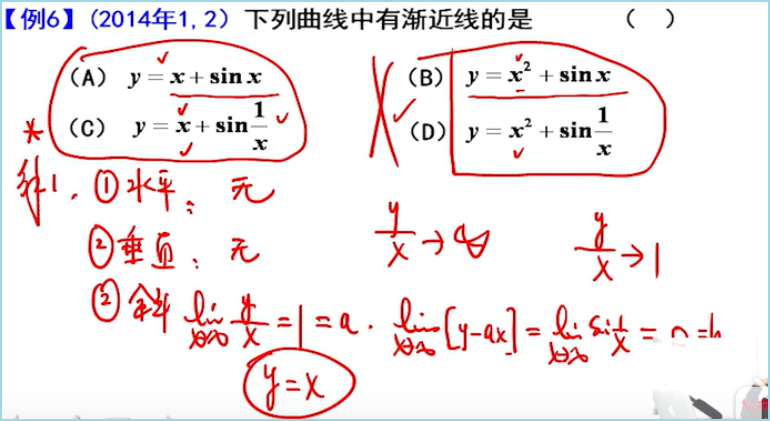 【例6】(2014年1,2) 下列曲线中有渐近线的是 ( )
(A) y = x + sin x (B) y = x² + sin x
(C) y = x + sin 1/x (D) y = x² + sin 1/x
解1. ①水平: 无
②垂直: 无
y/x → ∞ y/x → 1
③斜 lim x→∞ y/x = 1 = a. lim x→∞ [y-ax] = lim x→∞ sin 1/x = 0 = b
y=x